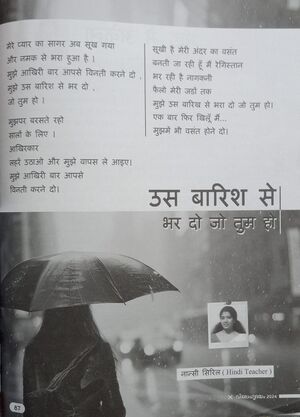 मेरे प्यार का सागर अब सूख गया
और नमक से भरा हुआ है ।
मुझे आखिरी बार आपसे विनती करने दो ,
मुझे उस बारिश से भर दो ,
जो तुम हो ।
मुझपर बरसते रहो
सालों के लिए ।
आखिरकार
लहरें उठाओ और मुझे वापस ले आइए।
मुझे आखिरी बार आपसे
विनती करने दो।
सूखी है मेरी अंदर का वसंत
बनती जा रही हूँ मैं रेगिस्तान
भर रही है नागफनी
फैलो मेरी जड़ों तक
मुझे उस बारिख से भरा दो जो तुम हो।
एक बार फिर खिलूँ मैं...
मुझमें भी वसंत होने दो।
उस बारिश से
भर दो जो तुम हो
नान्सी सिरिल ( Hindi Teacher )
67
2024